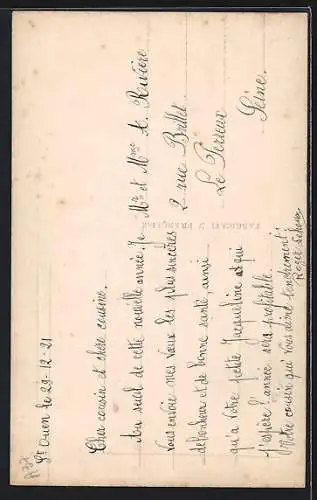 St Ouen le 29-12-21
Cher cousin et chère cousine.
Au seuil de cette nouvelle année. Je
vous envoie mes vœux les plus sincères
de bonheur et de bonne santé, ainsi
qu'a votre petite Jacqueline et qui
j'espère l'année sera profitable.
Votre cousin qui vous aime tendrement!
Roger
FABRICATION FRANÇAISE
Mr et Mme A. Rivière
2 rue Brillet
Le Perreux
Seine.